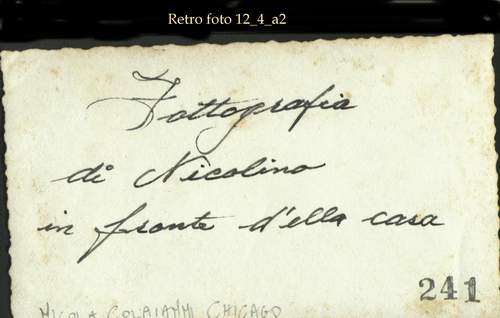 Retro foto 12_4_a2
Fottografia
di Nicolino
in fronte d'ella casa
241
NICOLA COLAIANNI CHICAGO